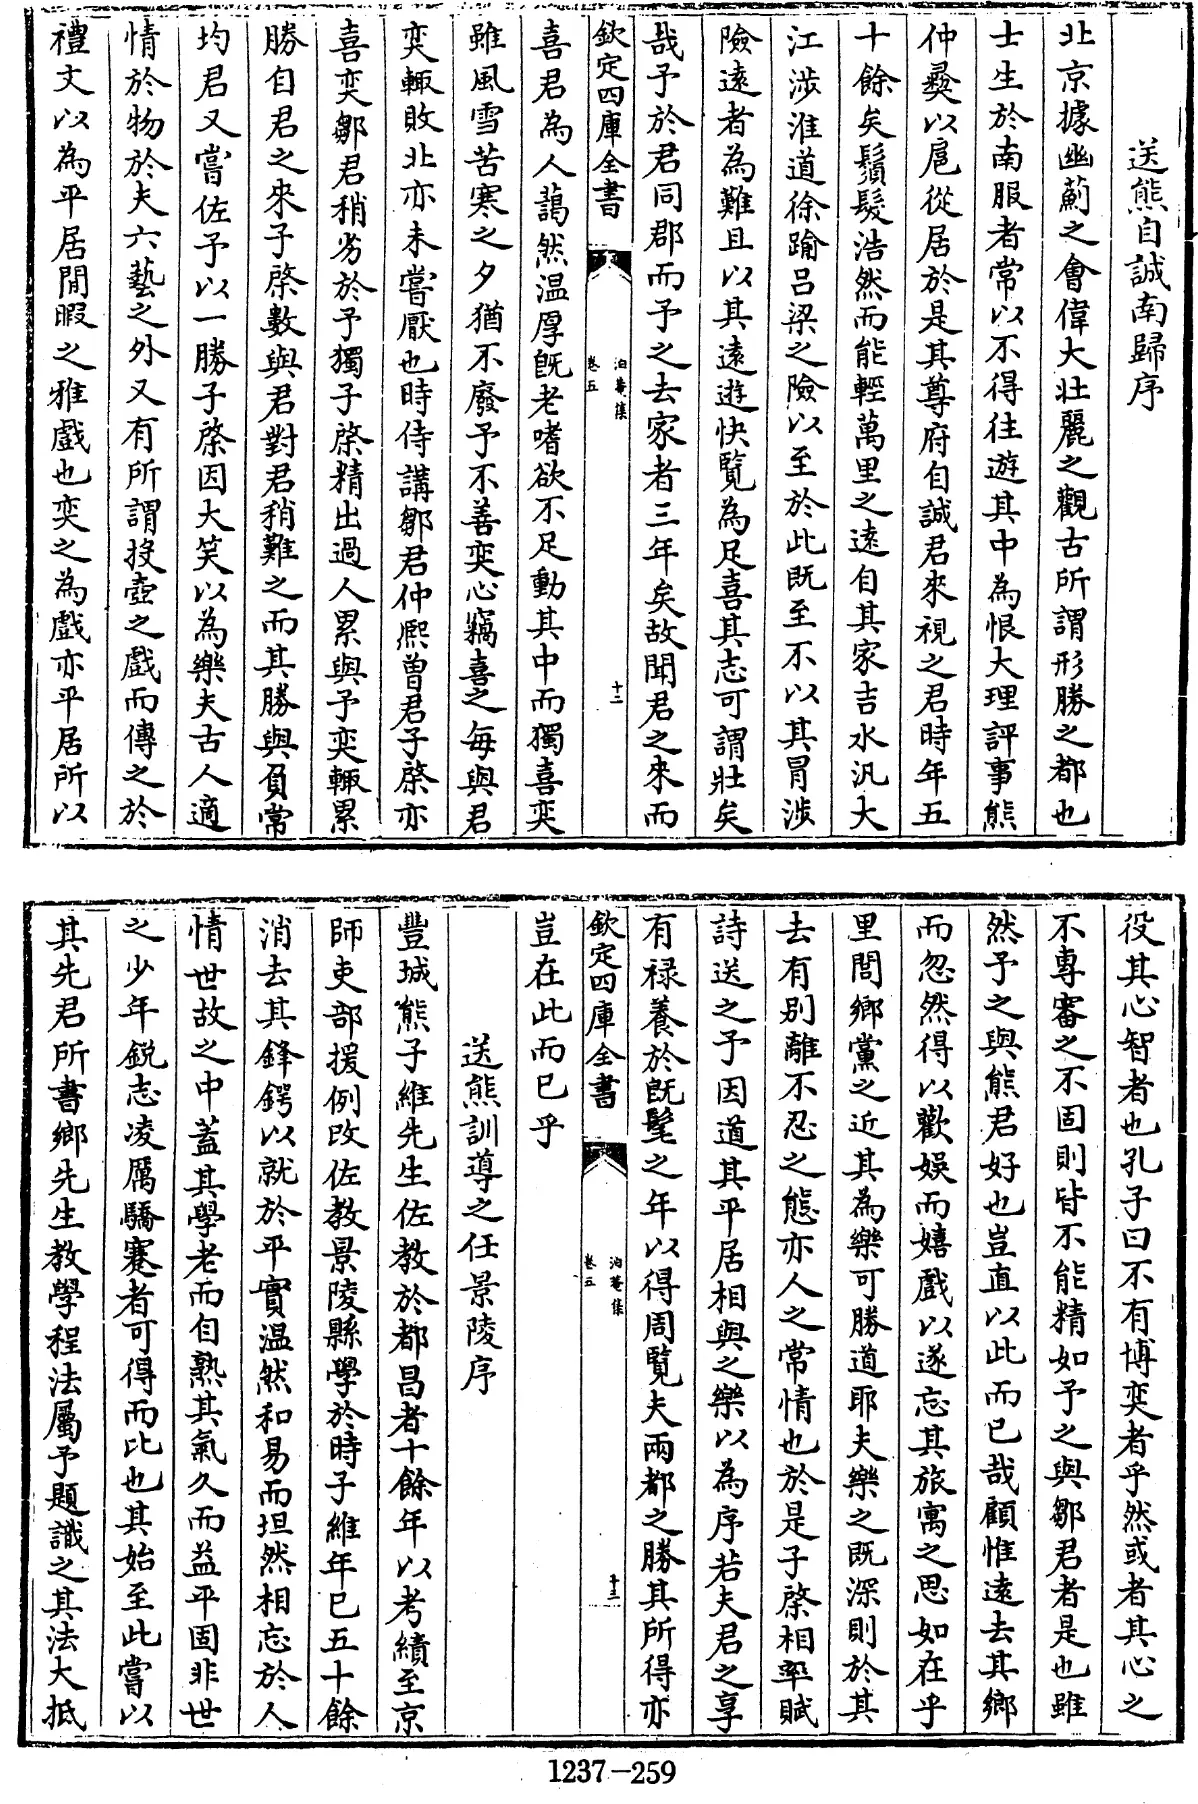 送熊自誠南歸序
北京據幽薊之會偉大壯麗之觀古所謂形勝之都也
士生於南服者常以不得往遊其中為恨大理評事熊
仲彛以扈從居於是其尊府自誠君來視之君時年五
十餘矣鬚髮浩然而能輕萬里之遠自其家吉水汎大
江涉淮道徐踰呂梁之險以至於此既至不以其冒涉
險遠者為難且以其遠遊快覽為足喜其志可謂壯矣
哉予於君同郡而予之去家者三年矣故聞君之來而
欽定四庫全書
泊菴集
卷五
十二
喜君為人藹然温厚既老嗜欲不足動其中而獨喜奕
雖風雪苦寒之夕猶不廢予不善奕心竊喜之每與君
奕輒敗北亦未嘗厭也時侍講鄒君仲熈曾君子棨亦
喜奕鄒君稍劣於予獨子棨精出過人累與予奕輒累
勝自君之來子棨數與君對君稍難之而其勝與負常
均君又嘗佐予以一勝子棨因大笑以為樂夫古人適
情於物於夫六藝之外又有所謂投壺之戲而傳之於
禮文以為平居閒暇之雅戲也奕之為戲亦平居所以
役其心智者也孔子曰不有博奕者乎然或者其心之
不專審之不固則皆不能精如予之與鄒君者是也雖
然予之與熊君好也豈直以此而已哉顧惟遠去其鄉
而忽然得以歡娛而嬉戲以遂忘其旅寓之思如在乎
里閭鄉黨之近其為樂可勝道耶夫樂之既深則於其
去有别離不忍之態亦人之常情也於是子棨相率賦
詩送之予因道其平居相與之樂以為序若夫君之享
有禄養於既髦之年以得周覽夫兩都之勝其所得亦
欽定四庫全書
泊菴集
卷五
十三
豈在此而已乎
送熊訓導之任景陵序
豐城熊子維先生佐教於都昌者十餘年以考績至京
師吏部援例改佐教景陵縣學於時子維年已五十餘
消去其鋒鍔以就於平實温然和易而坦然相忘於人
情世故之中蓋其學老而自熟其氣久而益平固非世
之少年鋭志凌厲驕蹇者可得而比也其始至此嘗以
其先君所書鄉先生教學程法屬予題識之其法大抵
1237—259